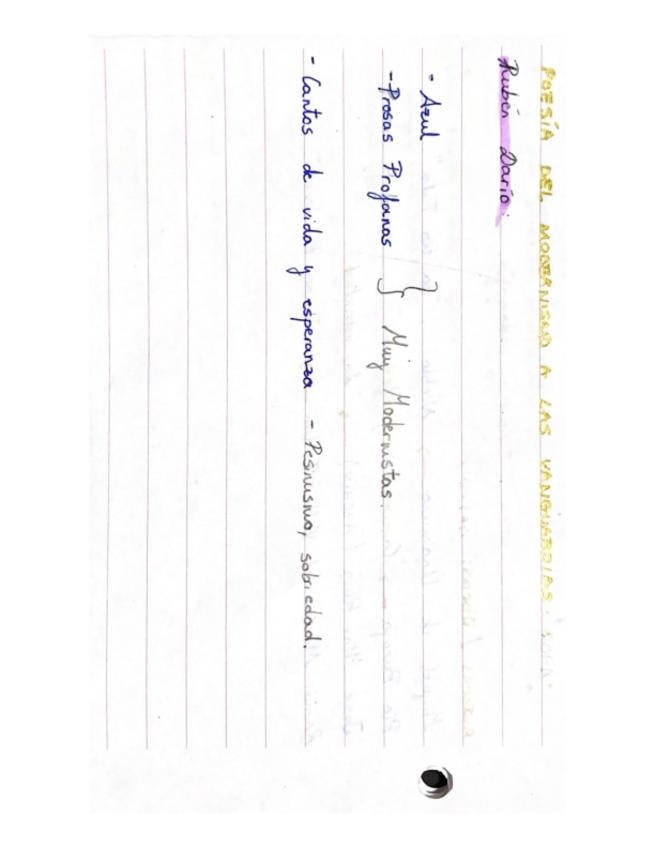 POESÍA DEL MODERNISMO A LAS VANGUARDIAS.
Rubén Darío:
- Azul
- Prosas Profanas } Muy Modernistas.
- Cantos de vida y esperanza - Pesimismo, sobriedad.